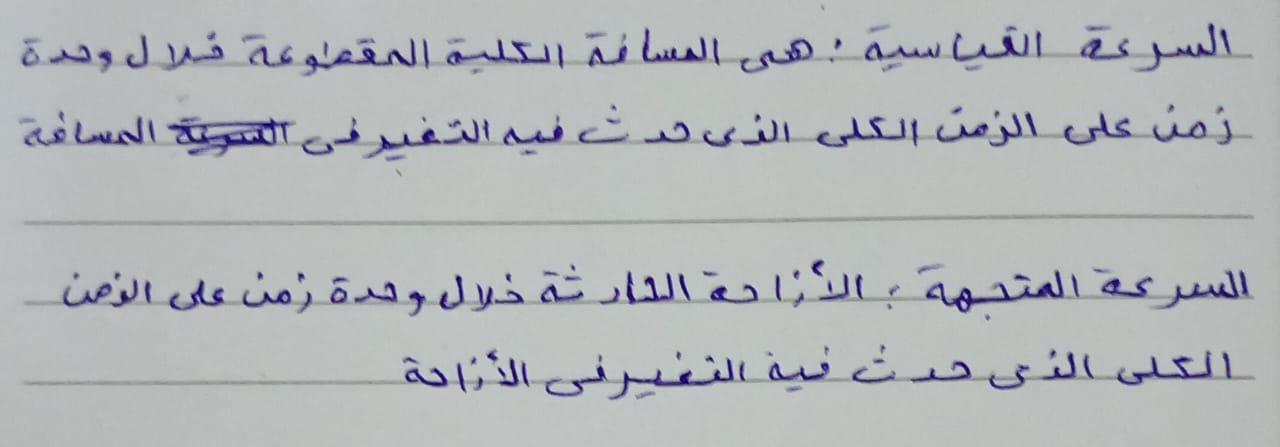 السرعة القياسية : هى المسافة الكلية المقطوعة خلال وحدة
زمن على الزمن الكلى الذى حدث فيه التغير فى المسافة
السرعة المتجهة : الأزاحة الحادثة خلال وحدة زمن على الزمن
الكلى الذى حدث فية التغير فى الأزاحة